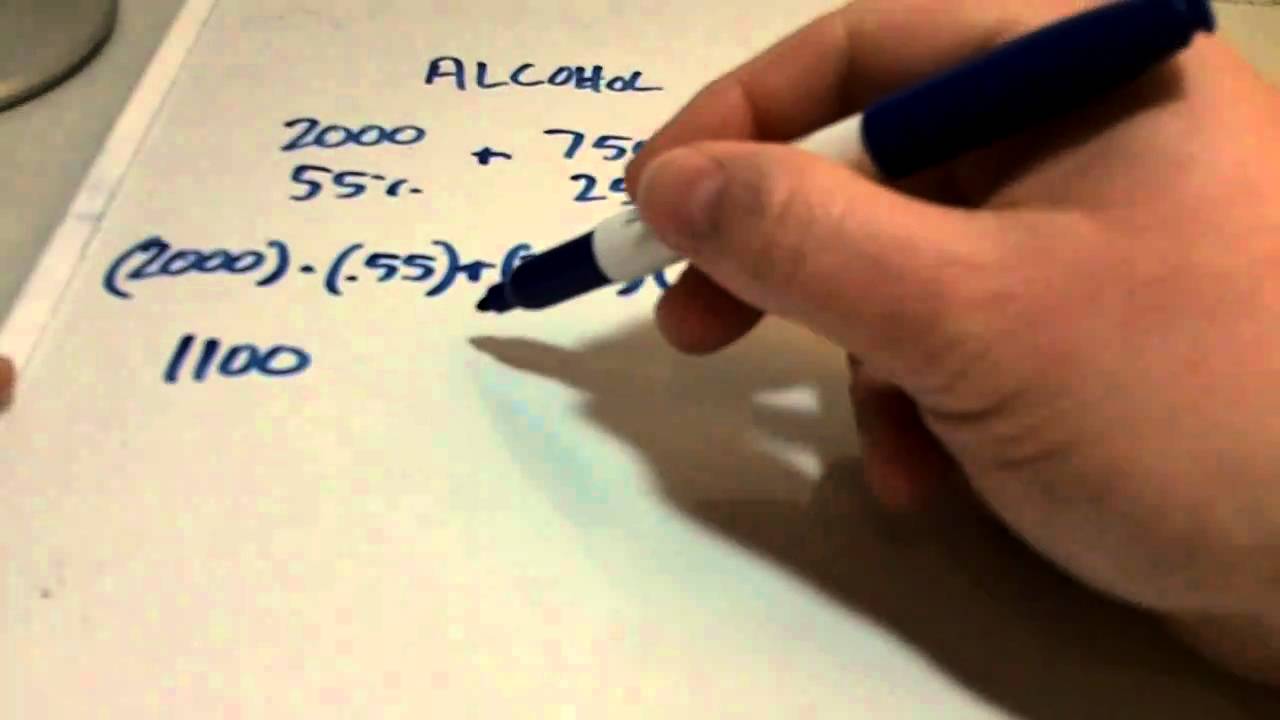 ALCOHOL
2000 + 75
55% 2
(2000) · (.55) + (
1100